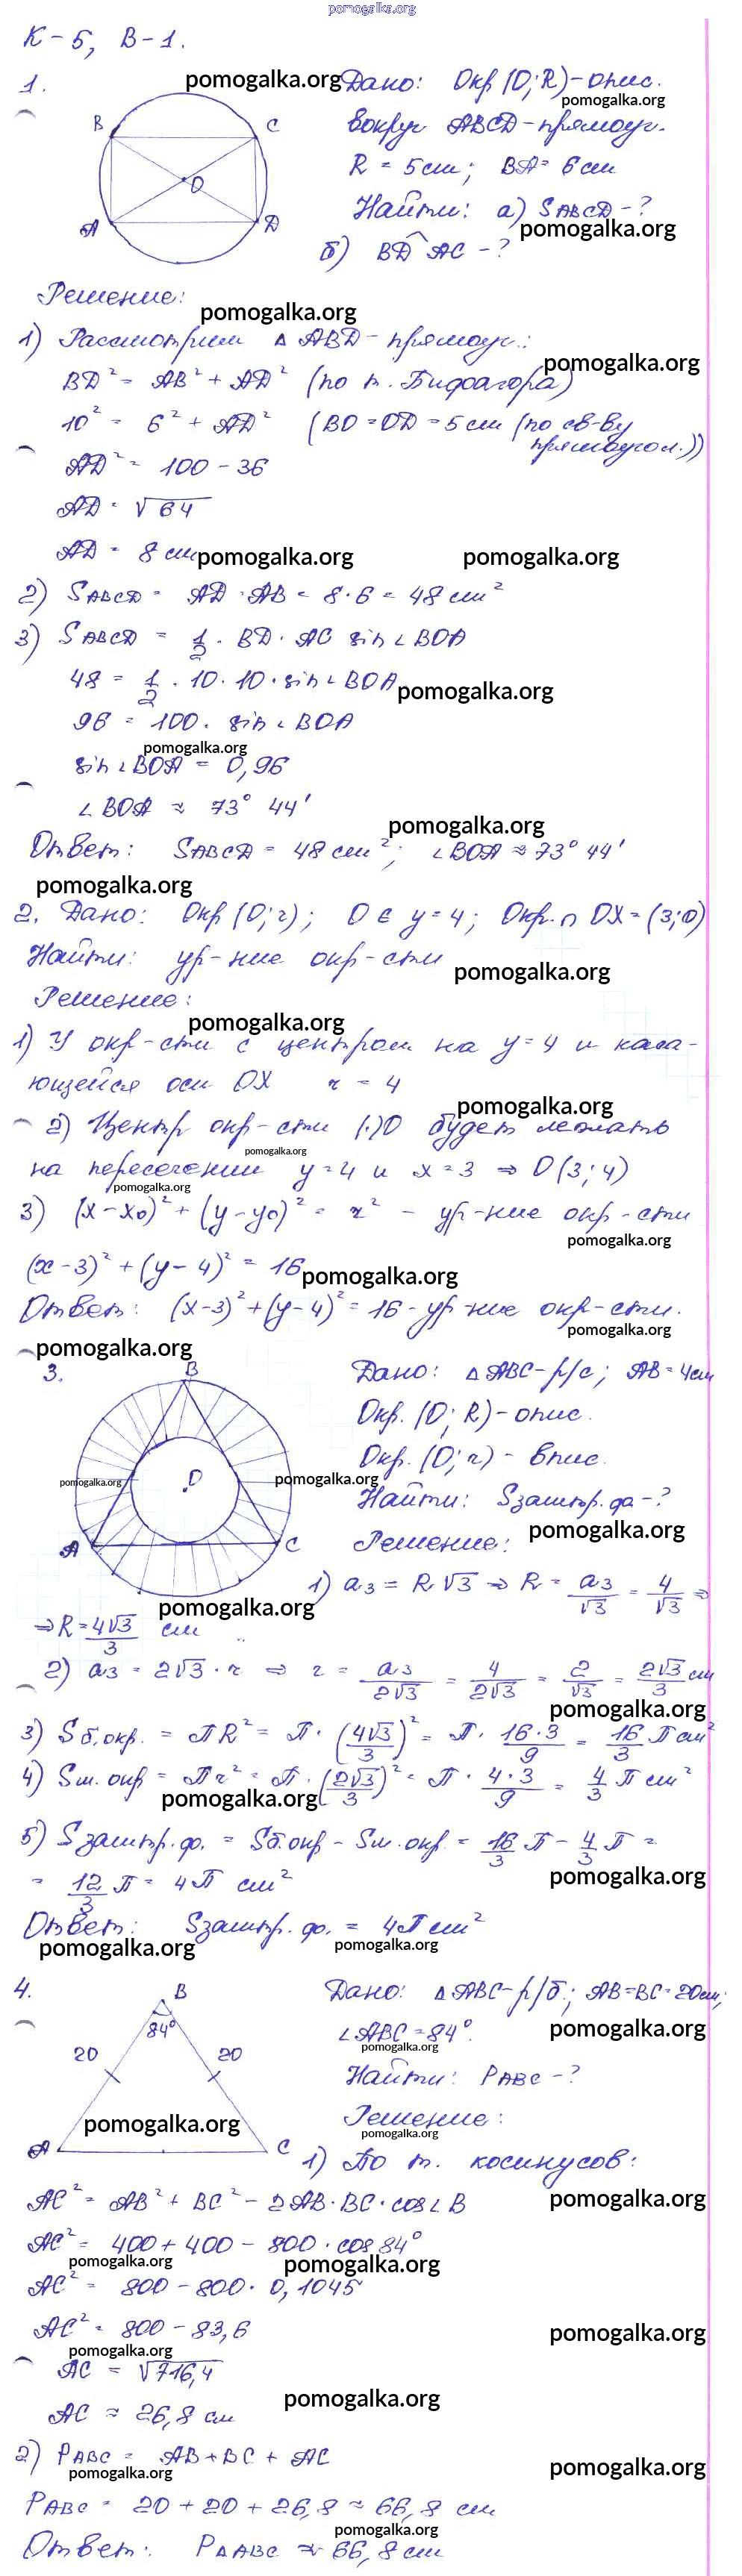 pomogalka.org
К-5, В-1.
1.
pomogalka.org
Дано: Окр (O; R) - опис.
pomogalka.org
вокруг ABCD - прямоуг.
R = 5 см; BA = 6 см
Найти: а) SABCD - ?
pomogalka.org
б) BD^AC - ?
B
C
O
A
D
Решение:
pomogalka.org
1) Рассмотрим △ ABD - прямоуг.:
pomogalka.org
BD² = AB² + AD² (по т. Пифагора)
10² = 6² + AD² (BO = OD = 5 см (по св-ву
прямоугол.))
AD² = 100 - 36
AD = √64
AD = 8 см
pomogalka.org pomogalka.org
2) SABCD = AD · AB = 8 · 6 = 48 см²
3) SABCD = 1/2 · BD · AC sin∠BOA
48 = 1/2 · 10 · 10 · sin∠BOA
pomogalka.org
96 = 100 · sin∠BOA
pomogalka.org
sin∠BOA = 0,96
∠BOA ≈ 73° 44'
pomogalka.org
Ответ: SABCD = 48 см²; ∠BOA ≈ 73° 44'
pomogalka.org
2. Дано: Окр (O; r); O ∈ y = 4; Окр. ∩ OX = (3; 0)
Найти: ур-ние окр-сти
pomogalka.org
Решение:
pomogalka.org
1) У окр-сти с центром на y = 4 и каса-
ющейся оси OX r = 4
pomogalka.org
2) Центр окр-сти (·)O будет лежать
pomogalka.org
на пересечении y = 4 и x = 3 ⇒ O (3; 4)
pomogalka.org
3) (x - x0)² + (y - y0)² = r² - ур-ние окр-сти
pomogalka.org
(x - 3)² + (y - 4)² = 16
pomogalka.org
Ответ: (x-3)² + (y-4)² = 16 - ур-ние окр-сти.
pomogalka.org
pomogalka.org
3.
B
Дано: △ ABC - р/с; AB = 4см
Окр. (O; R) - опис.
Окр. (O; r) - впис.
pomogalka.org
O
pomogalka.org
Найти: Sзаштр. фи - ?
pomogalka.org
A
C
Решение:
1) a3 = R√3 ⇒ R = a3/√3 = 4/√3 ⇒
pomogalka.org
⇒ R = 4√3/3 см
2) a3 = 2√3 · r ⇒ r = a3/2√3 = 4/2√3 = 2/√3 = 2√3/3 см
pomogalka.org
3) Sб.окр. = ПR² = П · (4√3/3)² = П · 16·3/9 = 16/3 П см²
4) Sм.окр = Пr² = П · (2√3/3)² = П · 4·3/9 = 4/3 П см²
pomogalka.org
5) Sзаштр.ф. = Sб.окр - Sм.окр = 16/3 П - 4/3 П =
= 12/3 П = 4П см²
pomogalka.org
Ответ: Sзаштр.ф. = 4П см²
pomogalka.org pomogalka.org
4.
B
84°
20
20
A
C
Дано: △ ABC - р/б; AB = BC = 20см;
∠ABC = 84°.
pomogalka.org
pomogalka.org
Найти: PABC - ?
pomogalka.org
Решение:
pomogalka.org
1) По т. косинусов:
AC² = AB² + BC² - 2AB · BC · cos∠B
pomogalka.org
AC² = 400 + 400 - 800 · cos 84°
pomogalka.org pomogalka.org
AC² = 800 - 800 · 0,1045
AC² = 800 - 83,6
pomogalka.org
pomogalka.org
AC = √716,4
pomogalka.org
AC ≈ 26,8 см
2) PABC = AB + BC + AC
pomogalka.org pomogalka.org
PABC = 20 + 20 + 26,8 ≈ 66,8 см
pomogalka.org
Ответ: P△ABC ≈ 66,8 см